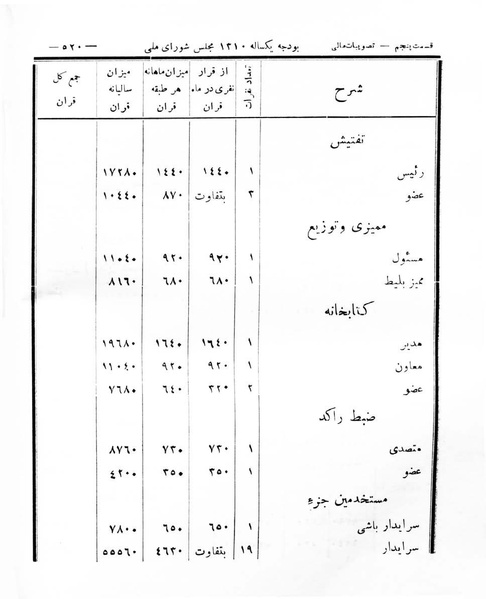 قسمت پنجم — تصویبات مالی بودجه یکساله ۱۳۱۰ مجلس شورای ملی — ۵۲۰ —
شرح تعداد نفرات از قرار نفری در ماه قران میزان ماهانه هر طبقه قران میزان سالیانه قران جمع کل قران
تفتیش
رئیس ۱ ۱٤٤۰ ۱٤٤۰ ۱۷۲۸۰
عضو ۳ بتفاوت ۸۷۰ ۱۰٤٤۰
ممیزی و توزیع
مسئول ۱ ۹۲۰ ۹۲۰ ۱۱۰٤۰
ممیز بلیط ۱ ٦۸۰ ٦۸۰ ۸۱٦۰
کتابخانه
مدیر ۱ ۱٦٤۰ ۱٦٤۰ ۱۹٦۸۰
معاون ۱ ۹۲۰ ۹۲۰ ۱۱۰٤۰
عضو ۲ ۳۲۰ ٦٤۰ ۷٦۸۰
ضبط راکد
متصدی ۱ ۷۳۰ ۷۳۰ ۸۷٦۰
عضو ۱ ۳۵۰ ۳۵۰ ٤۲۰۰
مستخدمین جزء
سرایدار باشی ۱ ٦۵۰ ٦۵۰ ۷۸۰۰
سرایدار ۱۹ بتفاوت ٤٦۳۰ ۵۵۵٦۰